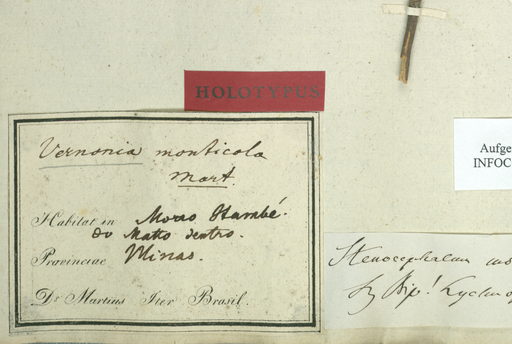 HOLOTYPUS
Vernonia monticola
Mart.
Habitat in Morro Itambé.
do Matto dentro.
Provinciae Minas.
Dr Martius Iter Brasil.
Aufge
INFOC
Stenocephalum mo
Sz Bip!